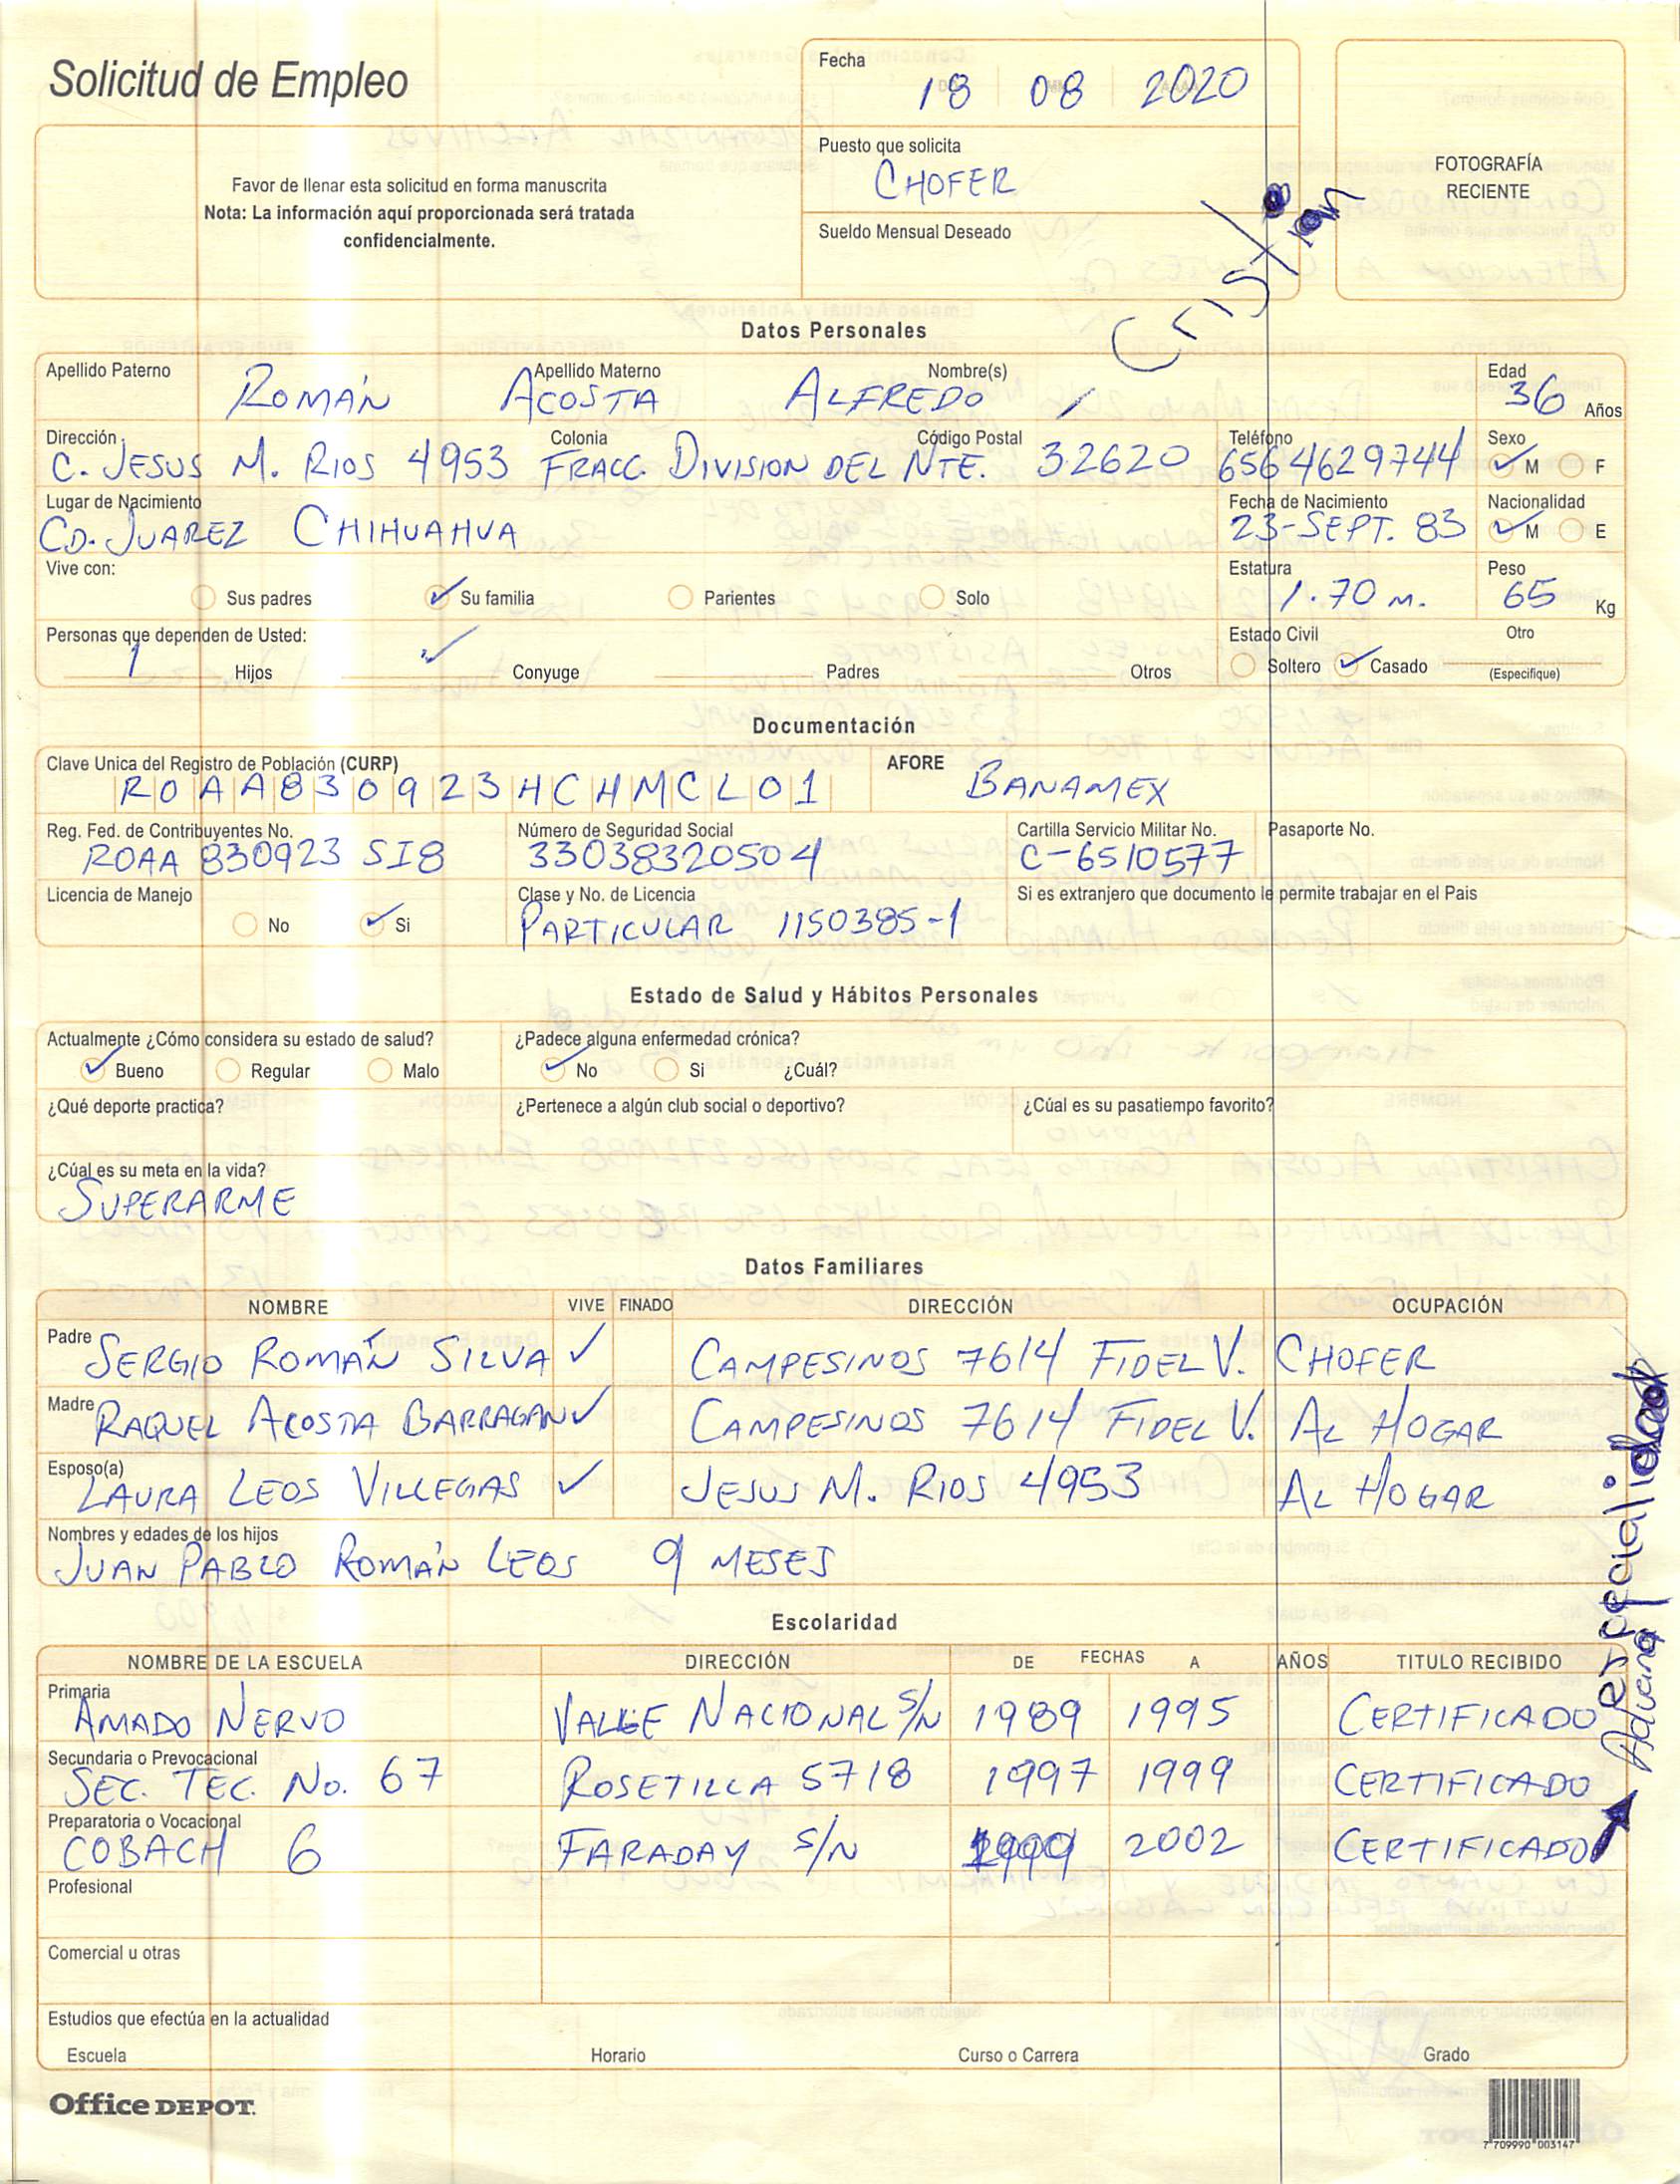 Solicitud de Empleo
Favor de llenar esta solicitud en forma manuscrita
Nota: La información aquí proporcionada será tratada
confidencialmente.
Fecha
18 08 2020
Puesto que solicita
CHOFER
Sueldo Mensual Deseado
Cristian
FOTOGRAFÍA
RECIENTE
Datos Personales
Apellido Paterno Apellido Materno Nombre(s) Edad
ROMÁN ACOSTA ALFREDO 36 Años
Dirección Colonia Código Postal Teléfono Sexo
C. JESUS M. RIOS 4953 FRACC. DIVISION DEL NTE. 32620 6564629744 M F
Lugar de Nacimiento Fecha de Nacimiento Nacionalidad
CD. JUAREZ CHIHUAHUA 23-SEPT. 83 M E
Vive con: Estatura Peso
Sus padres Su familia Parientes Solo 1.70 m. 65 Kg
Personas que dependen de Usted: Estado Civil Otro
1 Hijos Conyuge Padres Otros Soltero Casado (Especifique)
Documentación
Clave Unica del Registro de Población (CURP) AFORE
ROAA830923HCHMCL01 BANAMEX
Reg. Fed. de Contribuyentes No. Número de Seguridad Social Cartilla Servicio Militar No. Pasaporte No.
ROAA 830923 SI8 33038320504 C-6510577
Licencia de Manejo Clase y No. de Licencia Si es extranjero que documento le permite trabajar en el Pais
No Si PARTICULAR 1150385-1
Estado de Salud y Hábitos Personales
Actualmente ¿Cómo considera su estado de salud? ¿Padece alguna enfermedad crónica?
Bueno Regular Malo No Si ¿Cuál?
¿Qué deporte practica? ¿Pertenece a algún club social o deportivo? ¿Cúal es su pasatiempo favorito?
¿Cúal es su meta en la vida?
SUPERARME
Datos Familiares
NOMBRE VIVE FINADO DIRECCIÓN OCUPACIÓN
Padre SERGIO ROMÁN SILVA CAMPESINOS 7614 FIDEL V. CHOFER
Madre RAQUEL ACOSTA BARRAGAN CAMPESINOS 7614 FIDEL V. AL HOGAR
Esposo(a) LAURA LEOS VILLEGAS JESUS M. RIOS 4953 AL HOGAR
Nombres y edades de los hijos
JUAN PABLO ROMÁN LEOS 9 MESES
Escolaridad
NOMBRE DE LA ESCUELA DIRECCIÓN DE FECHAS A AÑOS TITULO RECIBIDO
Primaria
AMADO NERVO VALLE NACIONAL S/N 1989 1995 CERTIFICADO
Secundaria o Prevocacional
SEC. TEC. No. 67 ROSETILLA 5718 1997 1999 CERTIFICADO
Preparatoria o Vocacional
COBACH 6 FARADAY S/N 1999 2002 CERTIFICADO
especialidad
Aduana
Profesional
Comercial u otras
Estudios que efectúa en la actualidad
Escuela Horario Curso o Carrera Grado
Office DEPOT.
7 709990 003147